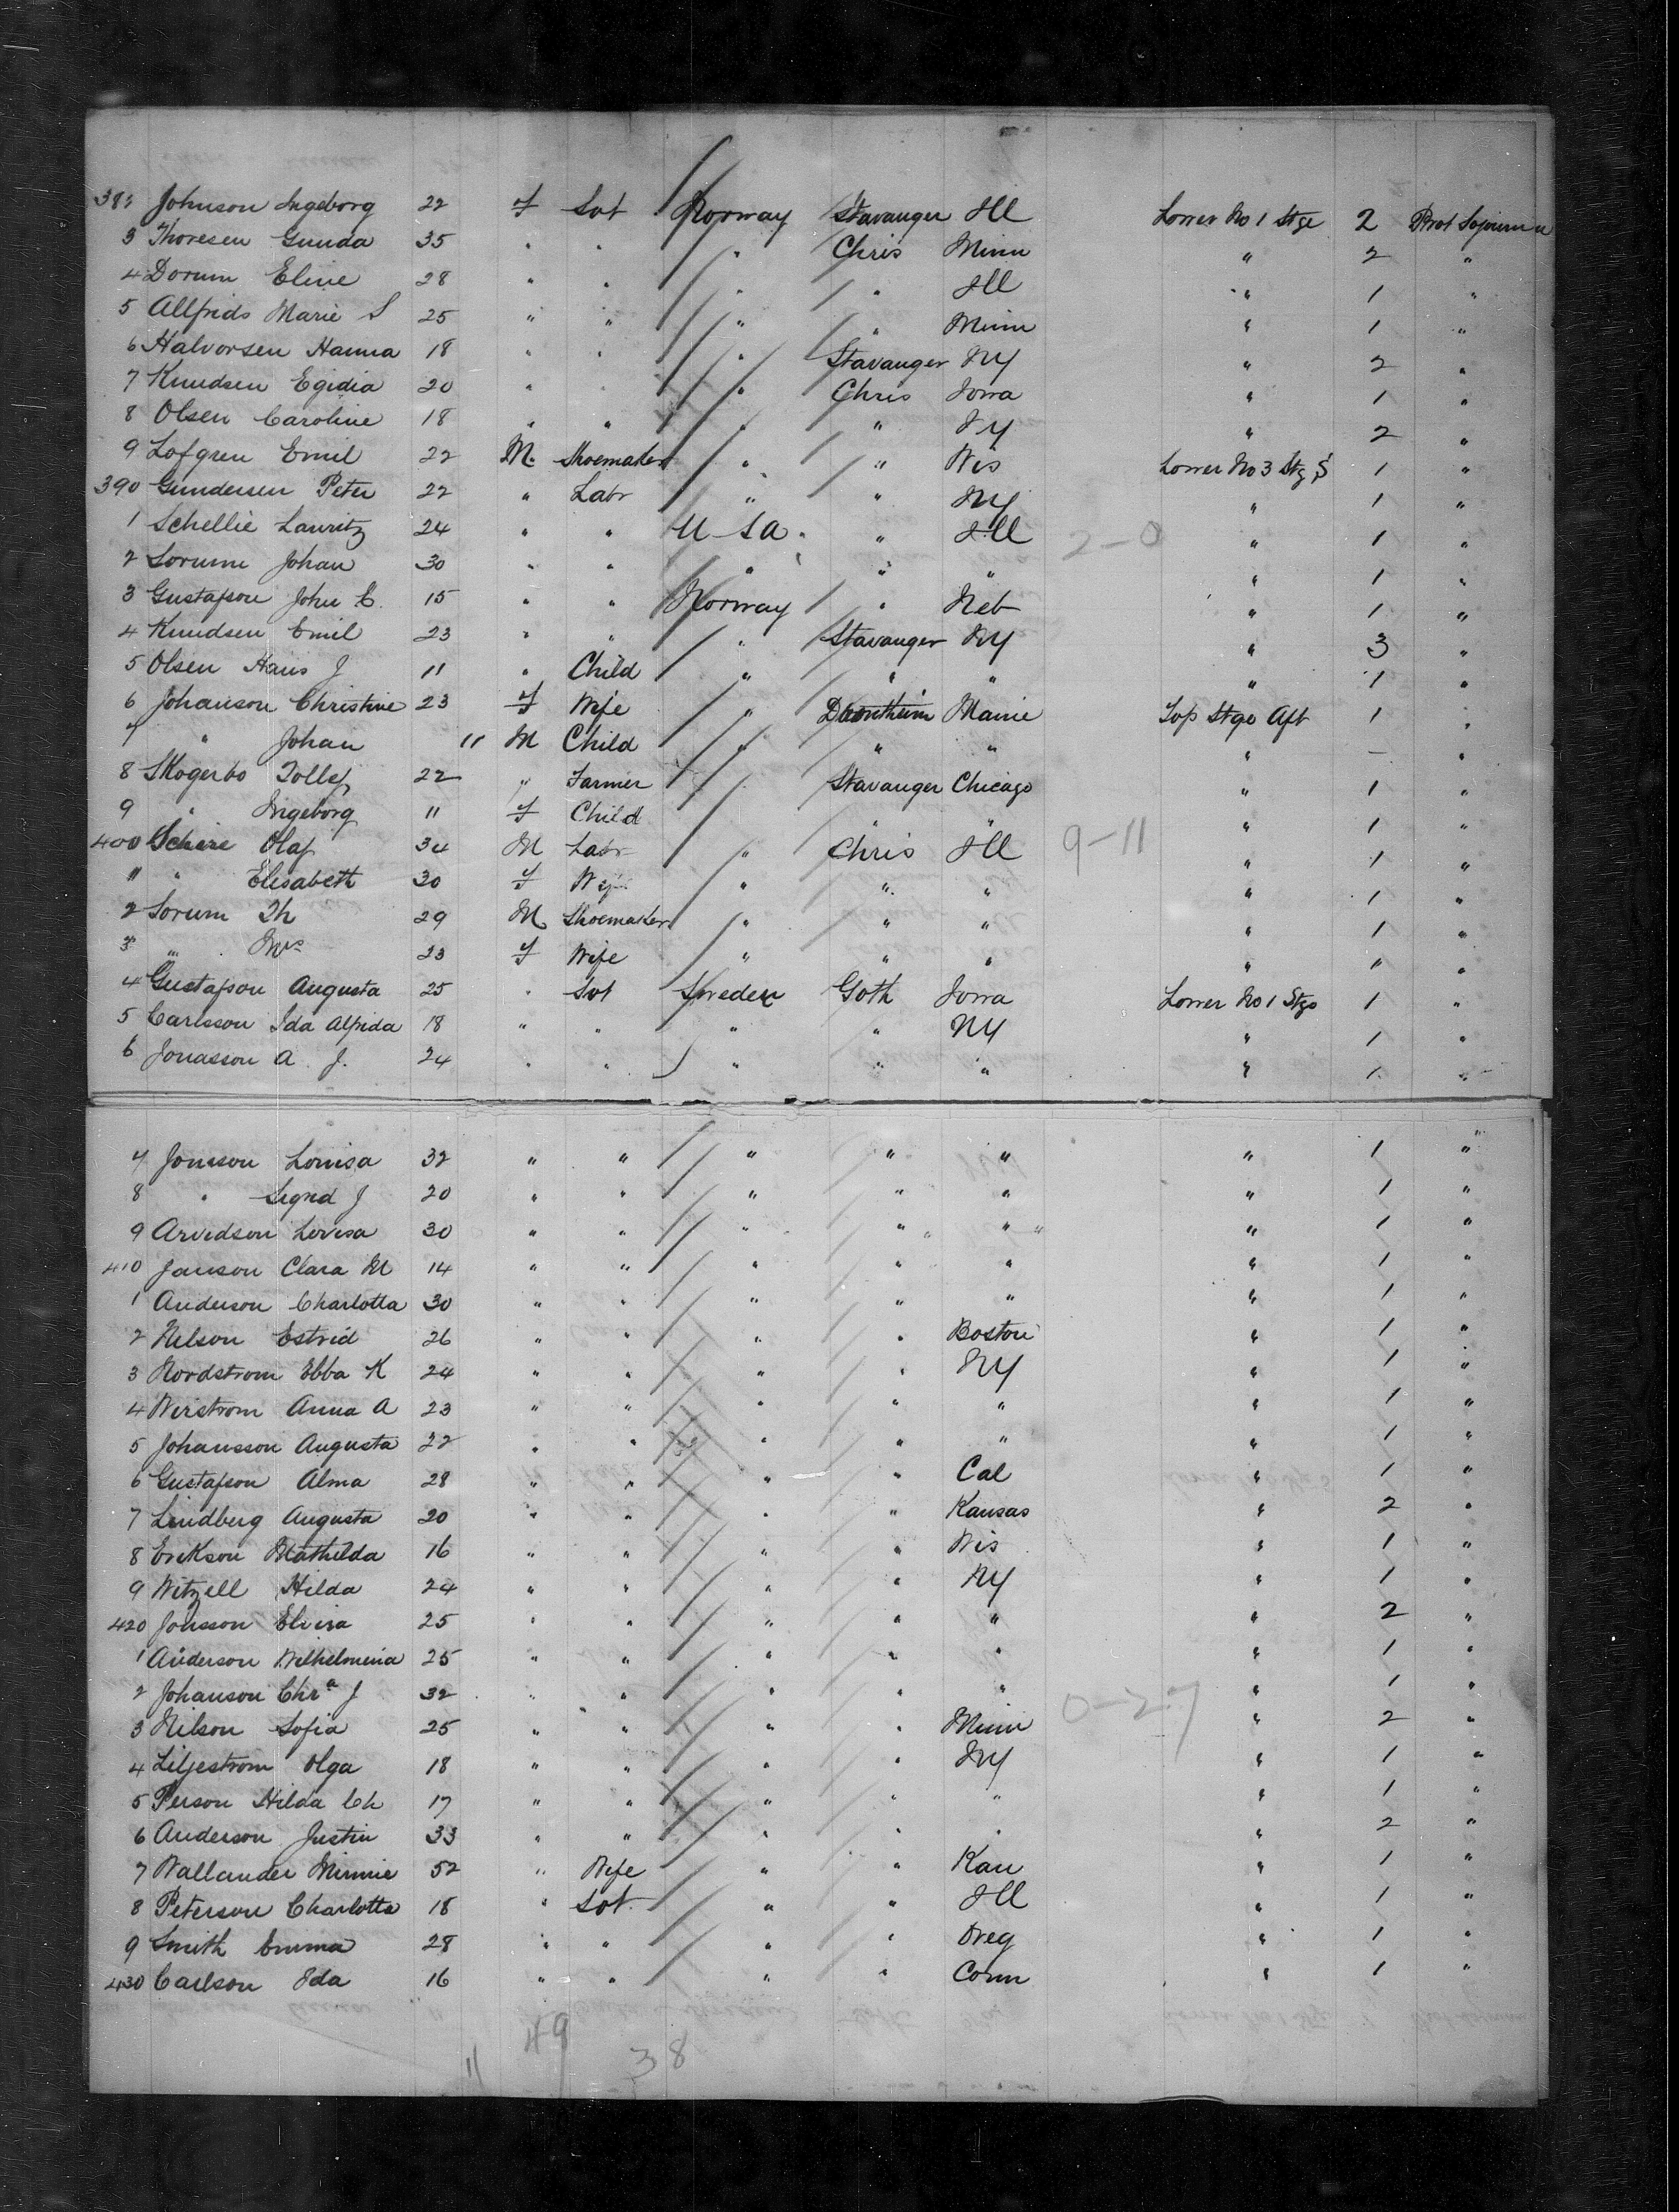 382 Johnson Ingeborg 22 f Svt Norway Stavanger Ill Lower No 1 Stge 2 Prot Sojourn
3 Thoresen Gunda 35 " " " Chris Minn " 2 "
4 Dorum Eline 28 " " " " Ill " 1 "
5 Allfrids Marie S 25 " " " " Minn " 1 "
6 Halvorsen Hanna 18 " " " Stavanger NY " 2 "
7 Knudsen Egidia 20 " " " Chris Iowa " 1 "
8 Olsen Caroline 18 " " " " NY " 2 "
9 Lofgren Emil 22 M Shoemaker " " Wis Lower No 3 Stg S 1 "
390 Gundersen Peter 22 " Labr " " NY " 1 "
1 Schellie Lauritz 24 " " U S A " Ill 2-0 " 1 "
2 Sorum Johan 30 " " " " " " 1 "
3 Gustafson John E. 15 " " Norway " Neb " 1 "
4 Knudsen Emil 23 " " " Stavanger NY " 3 "
5 Olsen Hans J 11 " Child " " " " 1 "
6 Johanson Christine 23 f Wife " Drontheim Maine Top Stge Aft 1 "
7 " Johan 11 M Child " " " " - "
8 Skogerbo Tollef 22 " Farmer " Stavanger Chicago " 1 "
9 " Ingeborg 11 f Child " " " " 1 "
400 Schere Olaf 34 M Labr " Chris Ill 9-11 " 1 "
" " Elisabeth 30 f Wife " " " " 1 "
2 Sorum Th 29 M Shoemaker " " " " 1 "
3 " Mrs 23 f Wife " " " " " "
4 Gustafson Augusta 25 " Svt Sweden Goth Iowa Lower No 1 Stge 1 "
5 Carlsson Ida Alfrida 18 " " " " NY " 1 "
6 Jonasson A. J. 24 " " " " " " 1 "
7 Jonsson Louisa 32 " " " " " " 1 "
8 " Signd J 20 " " " " " " 1 "
9 Arvidson Lovisa 30 " " " " " " 1 "
410 Janson Clara M 14 " " " " " " 1 "
1 Anderson Charlotta 30 " " " " " " 1 "
2 Nelson Estrid 26 " " " " Boston " 1 "
3 Nordstrom Ebba K 24 " " " " NY " 1 "
4 Wirstrom Anna A 23 " " " " " " 1 "
5 Johansson Augusta 22 " " " " " " 1 "
6 Gustafson Alma 28 " " " " Cal " 1 "
7 Lindberg Augusta 20 " " " " Kansas " 2 "
8 Erikson Mathilda 16 " " " " Wis " 1 "
9 Witzell Hilda 24 " " " " NY " 1 "
420 Jonsson Elvira 25 " " " " " " 2 "
1 Anderson Wilhelmina 25 " " " " " " 1 "
2 Johanson Chra J 32 " " " " " " 1 "
3 Nilson Sofia 25 " " " " Minn 0-27 " 2 "
4 Liljestrom Olga 18 " " " " NY " 1 "
5 Person Hilda Ch 17 " " " " " " 1 "
6 Anderson Justin 33 " " " " " " 2 "
7 Wallander Minnie 52 " Wife " " Kan " 1 "
8 Peterson Charlotta 18 " Svt. " " Ill " 1 "
9 Smith Emma 28 " " " " Oreg " 1 "
430 Carlson Ida 16 " " " " Conn " 1 "
11 49 38